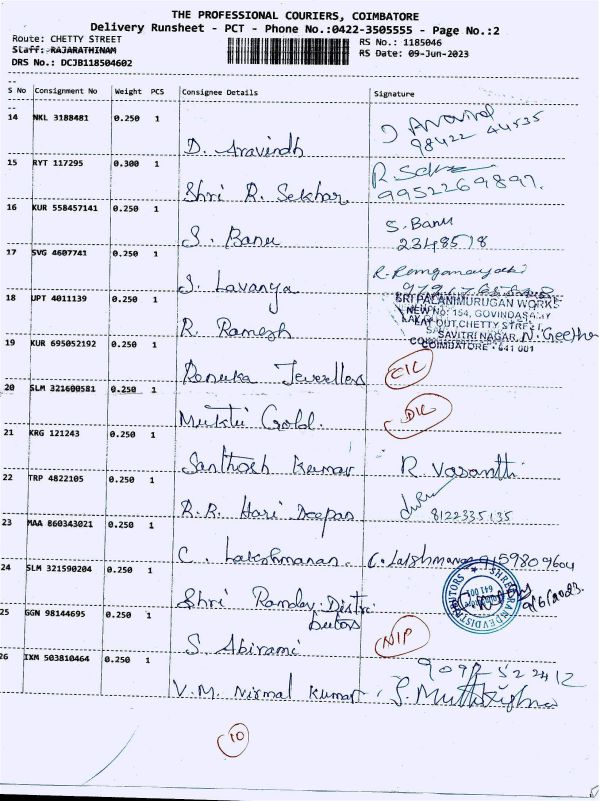 THE PROFESSIONAL COURIERS, COIMBATORE
Delivery Runsheet - PCT - Phone No.:0422-3505555 - Page No.:2
Route: CHETTY STREET
RS No.: 1185046
Staff: RAJARATHINAM
RS Date: 09-Jun-2023
DRS No.: DCJB118504602
S No Consignment No Weight PCS Consignee Details Signature
14 NKL 3188481 0.250 1 D. Aravindh D Aravind
98422 44535
15 RYT 117295 0.300 1 Shri R. Sekhar R. Sekar
9952269897.
16 KUR 558457141 0.250 1 S. Banu S. Banu
2348518
17 SVG 4607741 0.250 1 S. Lavanya
18 UPT 4011139 0.250 1 R. Ramesh
SRI PALANIMURUGAN WORKS
NEW No: 154, GOVINDASAMY
LAY OUT, CHETTY STREET,
SAVITRI NAGAR, N. Geetha
COIMBATORE - 641 001
19 KUR 695052192 0.250 1 Renuka Jewellers CIL
20 SLM 321600581 0.250 1 Muktii Gold. DIL
21 KRG 121243 0.250 1 Santhosh Kumar R Vasanthi
22 TRP 4822105 0.250 1 R.R. Hari Deepan
8122335135
23 MAA 860343021 0.250 1 C. Lakshmanan. C. Lakshmanan 9159809604
24 SLM 321590204 0.250 1 Shri Ramdev Distri
butors
9/6/2023.
25 GGN 98144695 0.250 1 S. Abirami NIP
26 IXM 503810464 0.250 1 V.M. Nirmal Kumar
10